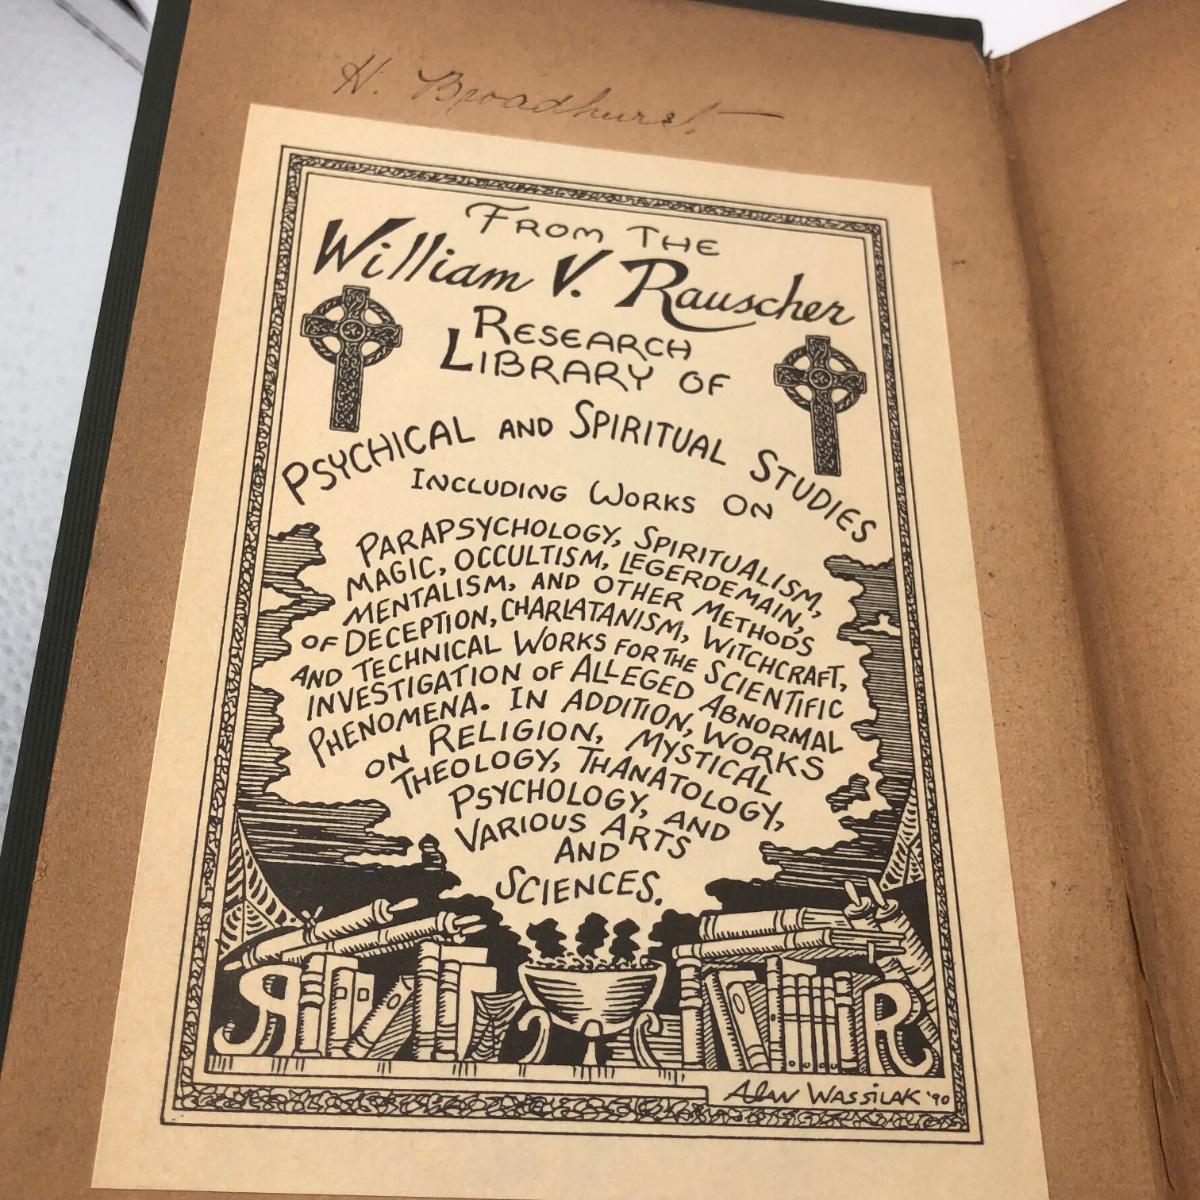 H. Broadhurst.
From The
William V. Rauscher
Research
Library of
Psychical and Spiritual Studies
Including Works On
Parapsychology, Spiritualism,
Magic, Occultism, Legerdemain,
Mentalism, and other Methods
of Deception, Charlatanism, Witchcraft,
and Technical Works for the Scientific
Investigation of Alleged Abnormal
Phenomena. In Addition, Works
on Religion, Mystical
Theology, Thanatology,
Psychology, and
Various Arts
and
Sciences.
R R
Alan Wassilak '90